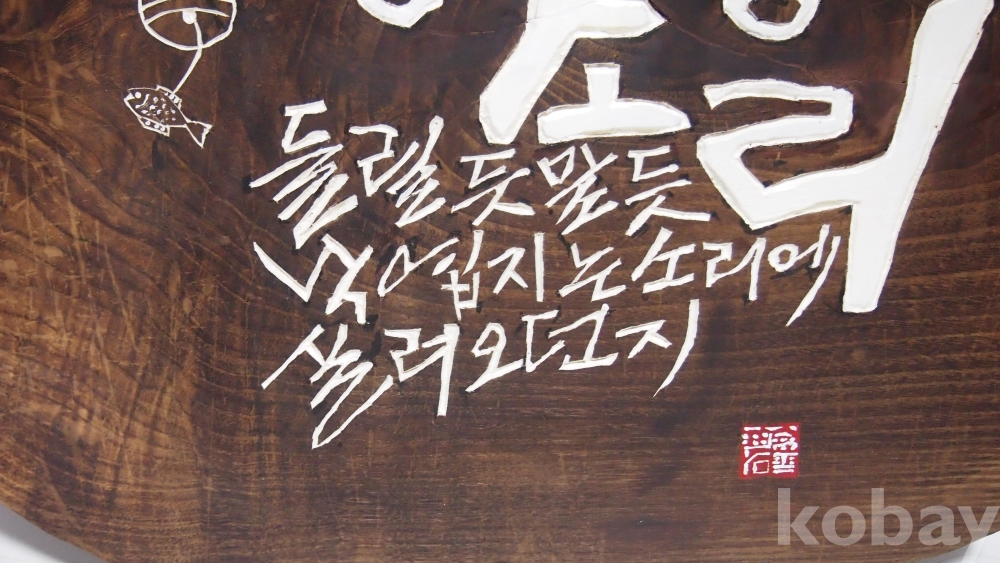 소리
들릴 듯 말 듯
낙엽 지는 소리에
쓸려 오던지
kobay